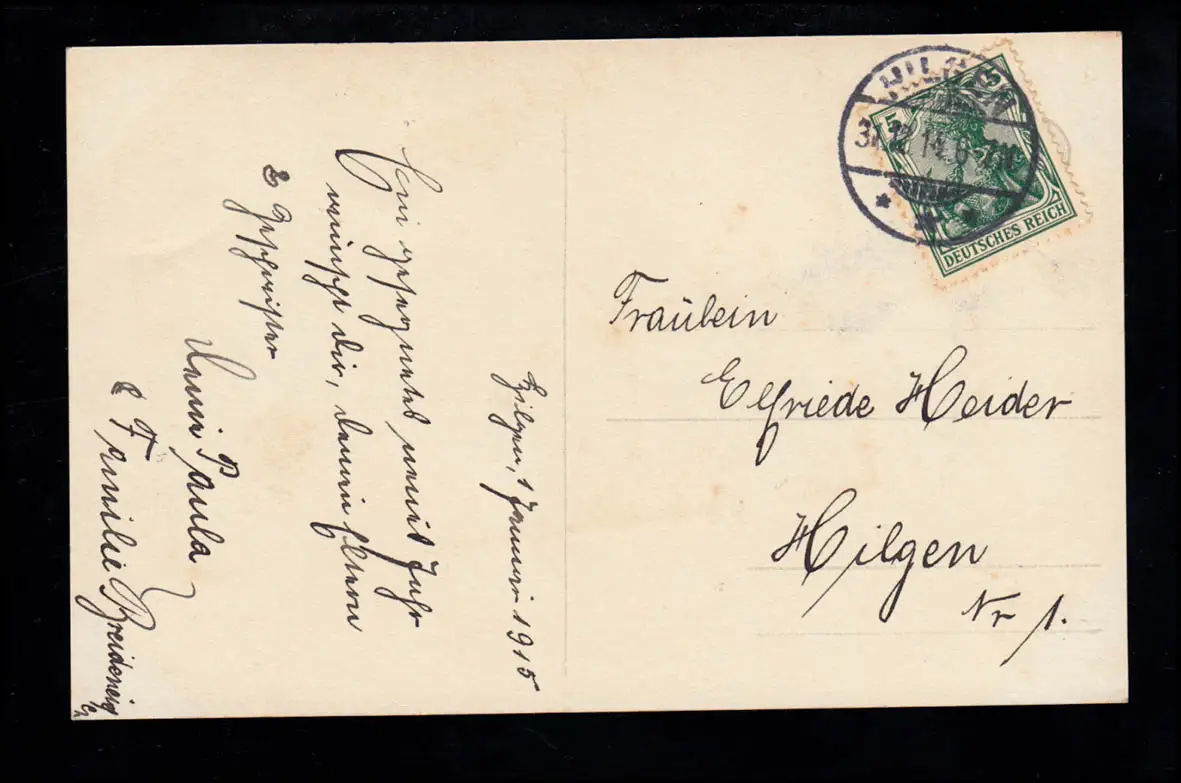 HILGEN
31.12.14. 6-7 N.
5
5
DEUTSCHES REICH
Fräulein
Elfriede Heider
Hilgen
Nr 1.
Hilgen, 1 Januar 1915
Ein gesegnetes neues Jahr
wünscht dir, deinen Eltern
& Geschwister
Deine Paula
& Familie